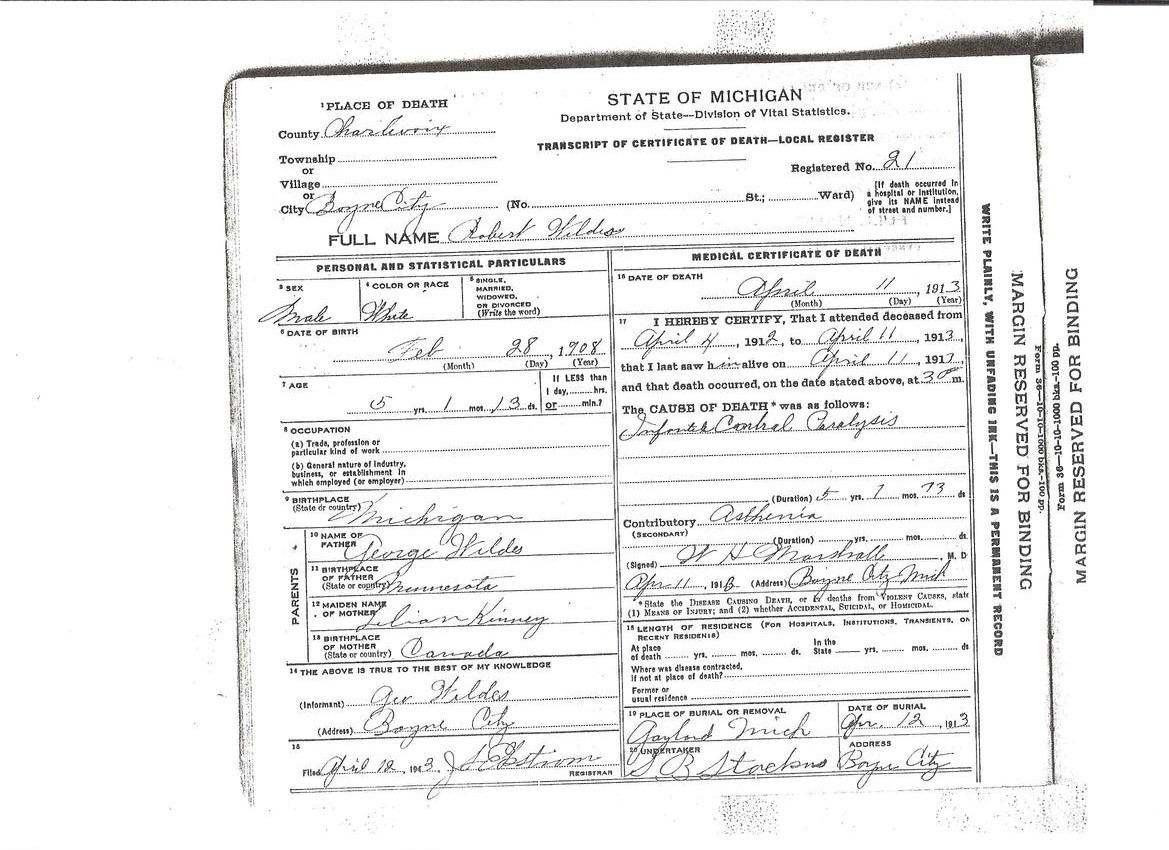 STATE OF MICHIGAN
Department of State—Division of Vital Statistics.
TRANSCRIPT OF CERTIFICATE OF DEATH—LOCAL REGISTER
1 PLACE OF DEATH
County Charlevoix
Township
or
Village
or
City Boyne City (No. St.; Ward)
Registered No. 21
[If death occurred in a hospital or institution, give its NAME instead of street and number.]
FULL NAME Robert Wildes
PERSONAL AND STATISTICAL PARTICULARS
3 SEX
Male
4 COLOR OR RACE
White
5 SINGLE, MARRIED, WIDOWED, OR DIVORCED
(Write the word)
6 DATE OF BIRTH
Feb 28, 1908
(Month) (Day) (Year)
7 AGE
5 yrs. 1 mos. 13 ds.
If LESS than
1 day, hrs.
or min.?
8 OCCUPATION
(a) Trade, profession or
particular kind of work
(b) General nature of industry,
business, or establishment in
which employed (or employer)
9 BIRTHPLACE
(State or country)
Michigan
PARENTS
10 NAME OF
FATHER
George Wildes
11 BIRTHPLACE
OF FATHER
(State or country) Minnesota
12 MAIDEN NAME
OF MOTHER
Lilian Kinney
13 BIRTHPLACE
OF MOTHER
(State or country) Canada
14 THE ABOVE IS TRUE TO THE BEST OF MY KNOWLEDGE
(Informant) Geo Wildes
(Address) Boyne City
15
Filed April 12, 1913.
REGISTRAR
MEDICAL CERTIFICATE OF DEATH
16 DATE OF DEATH
April 11, 1913
(Month) (Day) (Year)
17 I HEREBY CERTIFY, That I attended deceased from
April 4, 1912, to April 11 1913,
that I last saw him alive on April 11 191
and that death occurred, on the date stated above, at m.
The CAUSE OF DEATH* was as follows:
Paralysis
(Duration) 5 yrs. 1 mos. 13 ds
Contributory Asthenia
(SECONDARY)
(Duration) yrs. mos. ds.
(Signed) W H Marshall, M. D
Apr 11, 1913 (Address) Boyne City Mich
*State the DISEASE CAUSING DEATH, or in deaths from VIOLENT CAUSES, state
(1) MEANS OF INJURY; and (2) whether ACCIDENTAL, SUICIDAL, OR HOMICIDAL.
18 LENGTH OF RESIDENCE (FOR HOSPITALS, INSTITUTIONS, TRANSIENTS, OR
RECENT RESIDENTS)
At place
of death yrs. mos. ds.
In the
State yrs. mos. ds
Where was disease contracted,
if not at place of death?
Former or
usual residence
19 PLACE OF BURIAL OR REMOVAL
Gaylord Mich
DATE OF BURIAL
Apr. 12, 1913
20 UNDERTAKER
S B Stackus
ADDRESS
Boyne City
WRITE PLAINLY, WITH UNFADING INK—THIS IS A PERMANENT RECORD
MARGIN RESERVED FOR BINDING
Form 36—10-10-1000 bks-100 pp.
Form 36—10-10-1000 bks-100 pp.
MARGIN RESERVED FOR BINDING